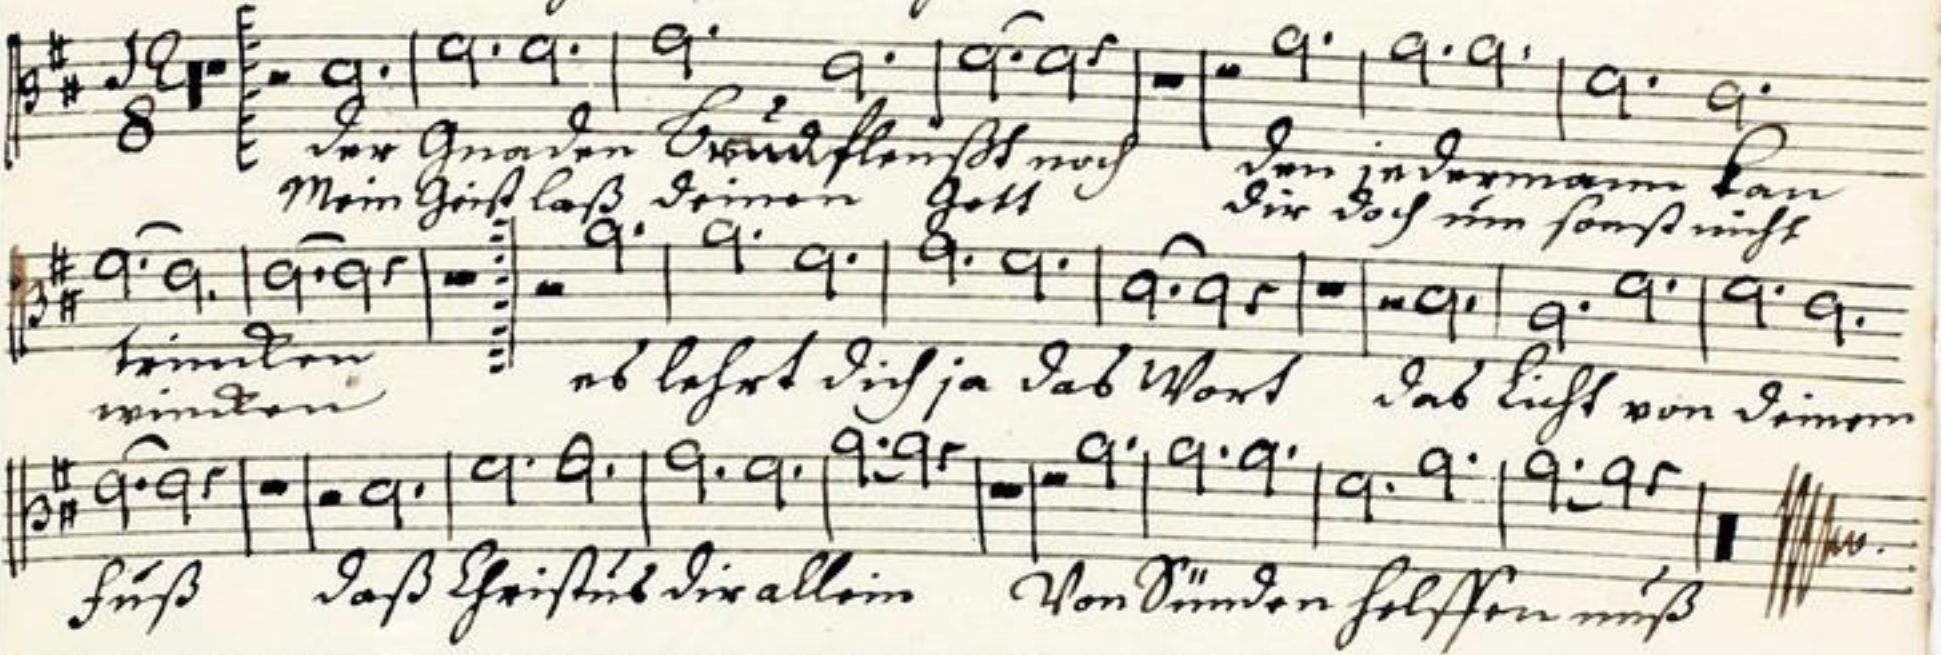 12
8
der Gnaden Brunn fleußt noch den jedermann kan
Mein Geist laß deinen Gott dir doch üm sonst nicht
trincken
wincken
es lehrt dich ja das Wort das Licht von deinem
Fuß daß Christus dir allein Von Sünden helffen muß